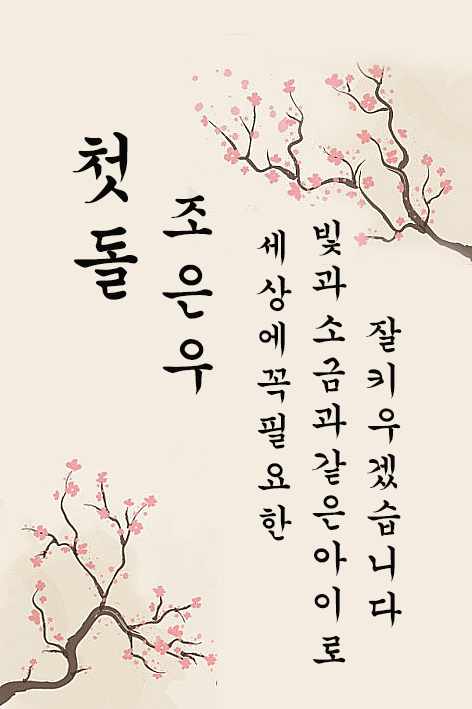 첫돌
조은우
세상에꼭필요한
빛과소금과같은아이로
잘키우겠습니다